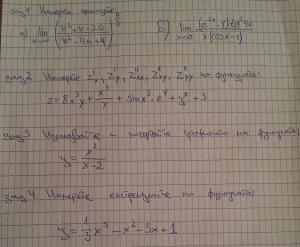 зад.1 Намерете границите:
а) lim n→∞ (n²+n-20 / n²-4n+4) б) lim x→0 (e²ˣ-1)tg⁴x / x(cosx-1)
зад.2 Намерете z'ₓ, z'ᵧ, z''ₓₓ, z''ₓᵧ, z''ᵧᵧ на функцията:
z = 8x³y + x³/y + sinx⁵.eʸ + yˣ + 3
зад.3 Изследвайте и начертайте графиката на функцията:
y = x² / x-2
зад.4 Намерете екстремумите на функцията:
y = 1/3 x³ - x² - 3x + 1